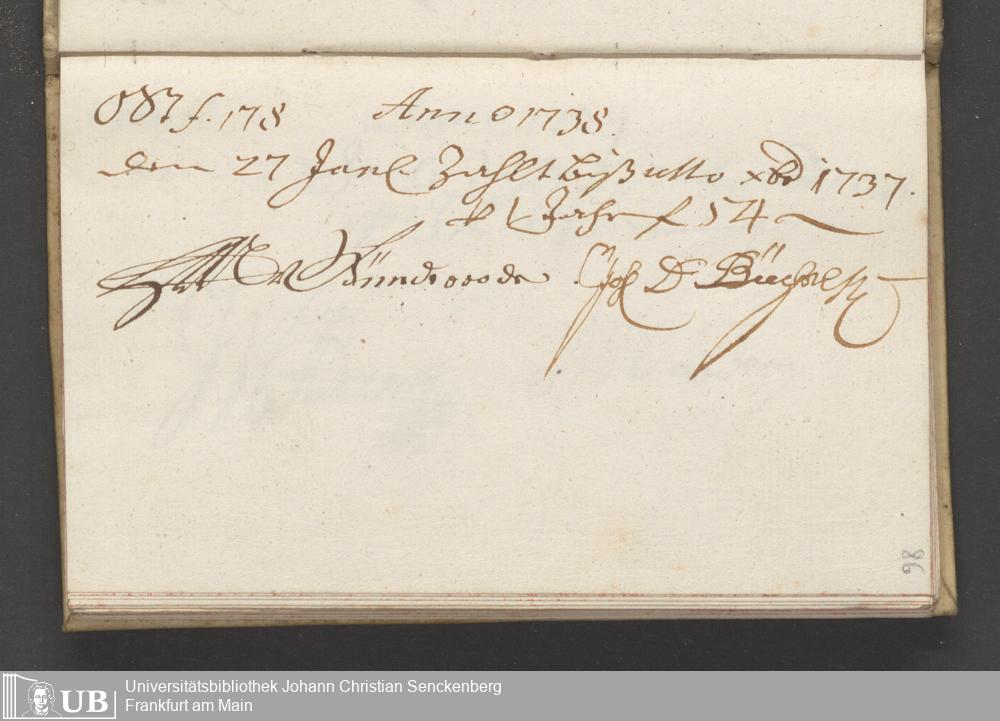 f. 178 Anno 1738.
den 27 Jan. Zahlt biß ulto xbr 1737.
1 Jahr f 54
Günderode Joh D Büchel
98
UB Universitätsbibliothek Johann Christian Senckenberg
Frankfurt am Main